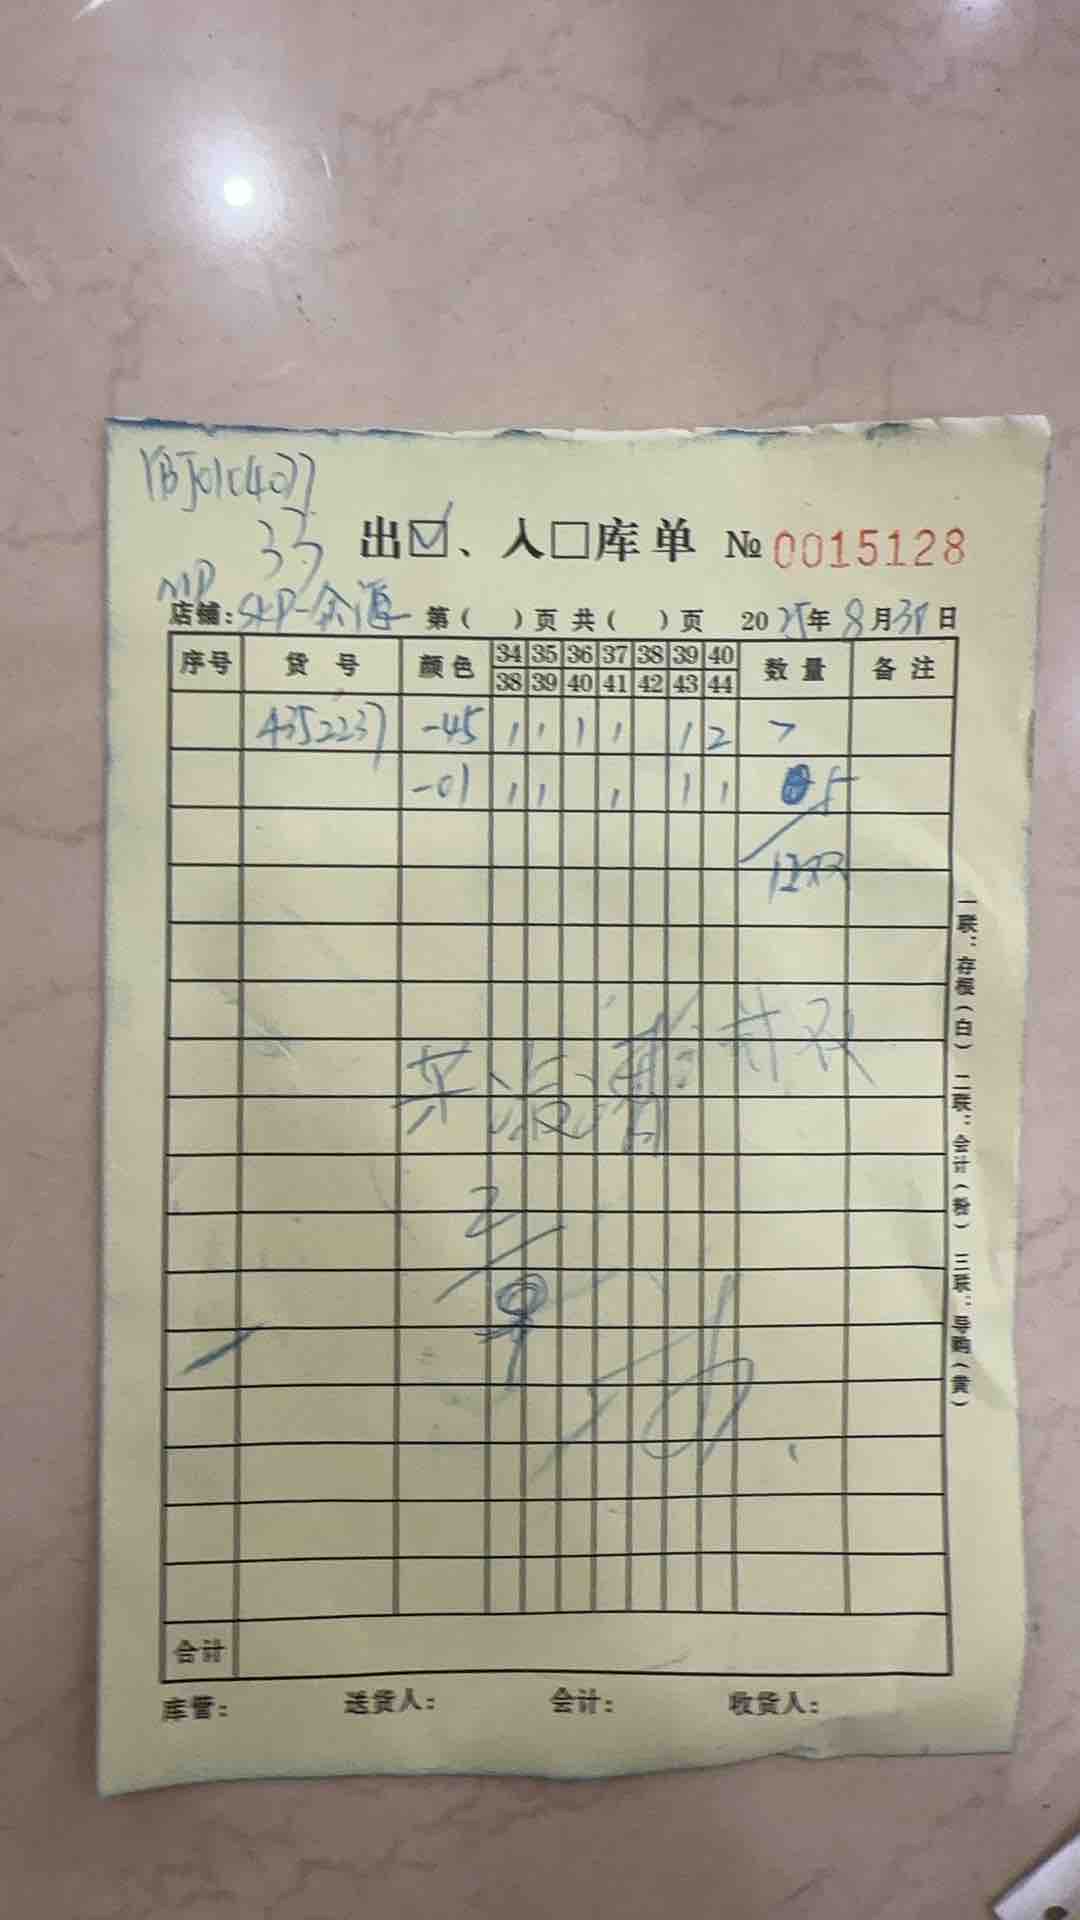 YBJ0104077
33
出☑、入□库单 № 0015128
MP
店铺: SKP-余源 第( )页 共( )页 2025年8月31日
序号 货号 颜色 34 35 36 37 38 39 40 数量 备注
38 39 40 41 42 43 44
4352237 -45 1 1 1 1 1 2 7
-01 1 1 1 1 1 5
12双
合计
库管: 送货人: 会计: 收货人:
一联:存根(白) 二联:会计(粉) 三联:导购(黄)